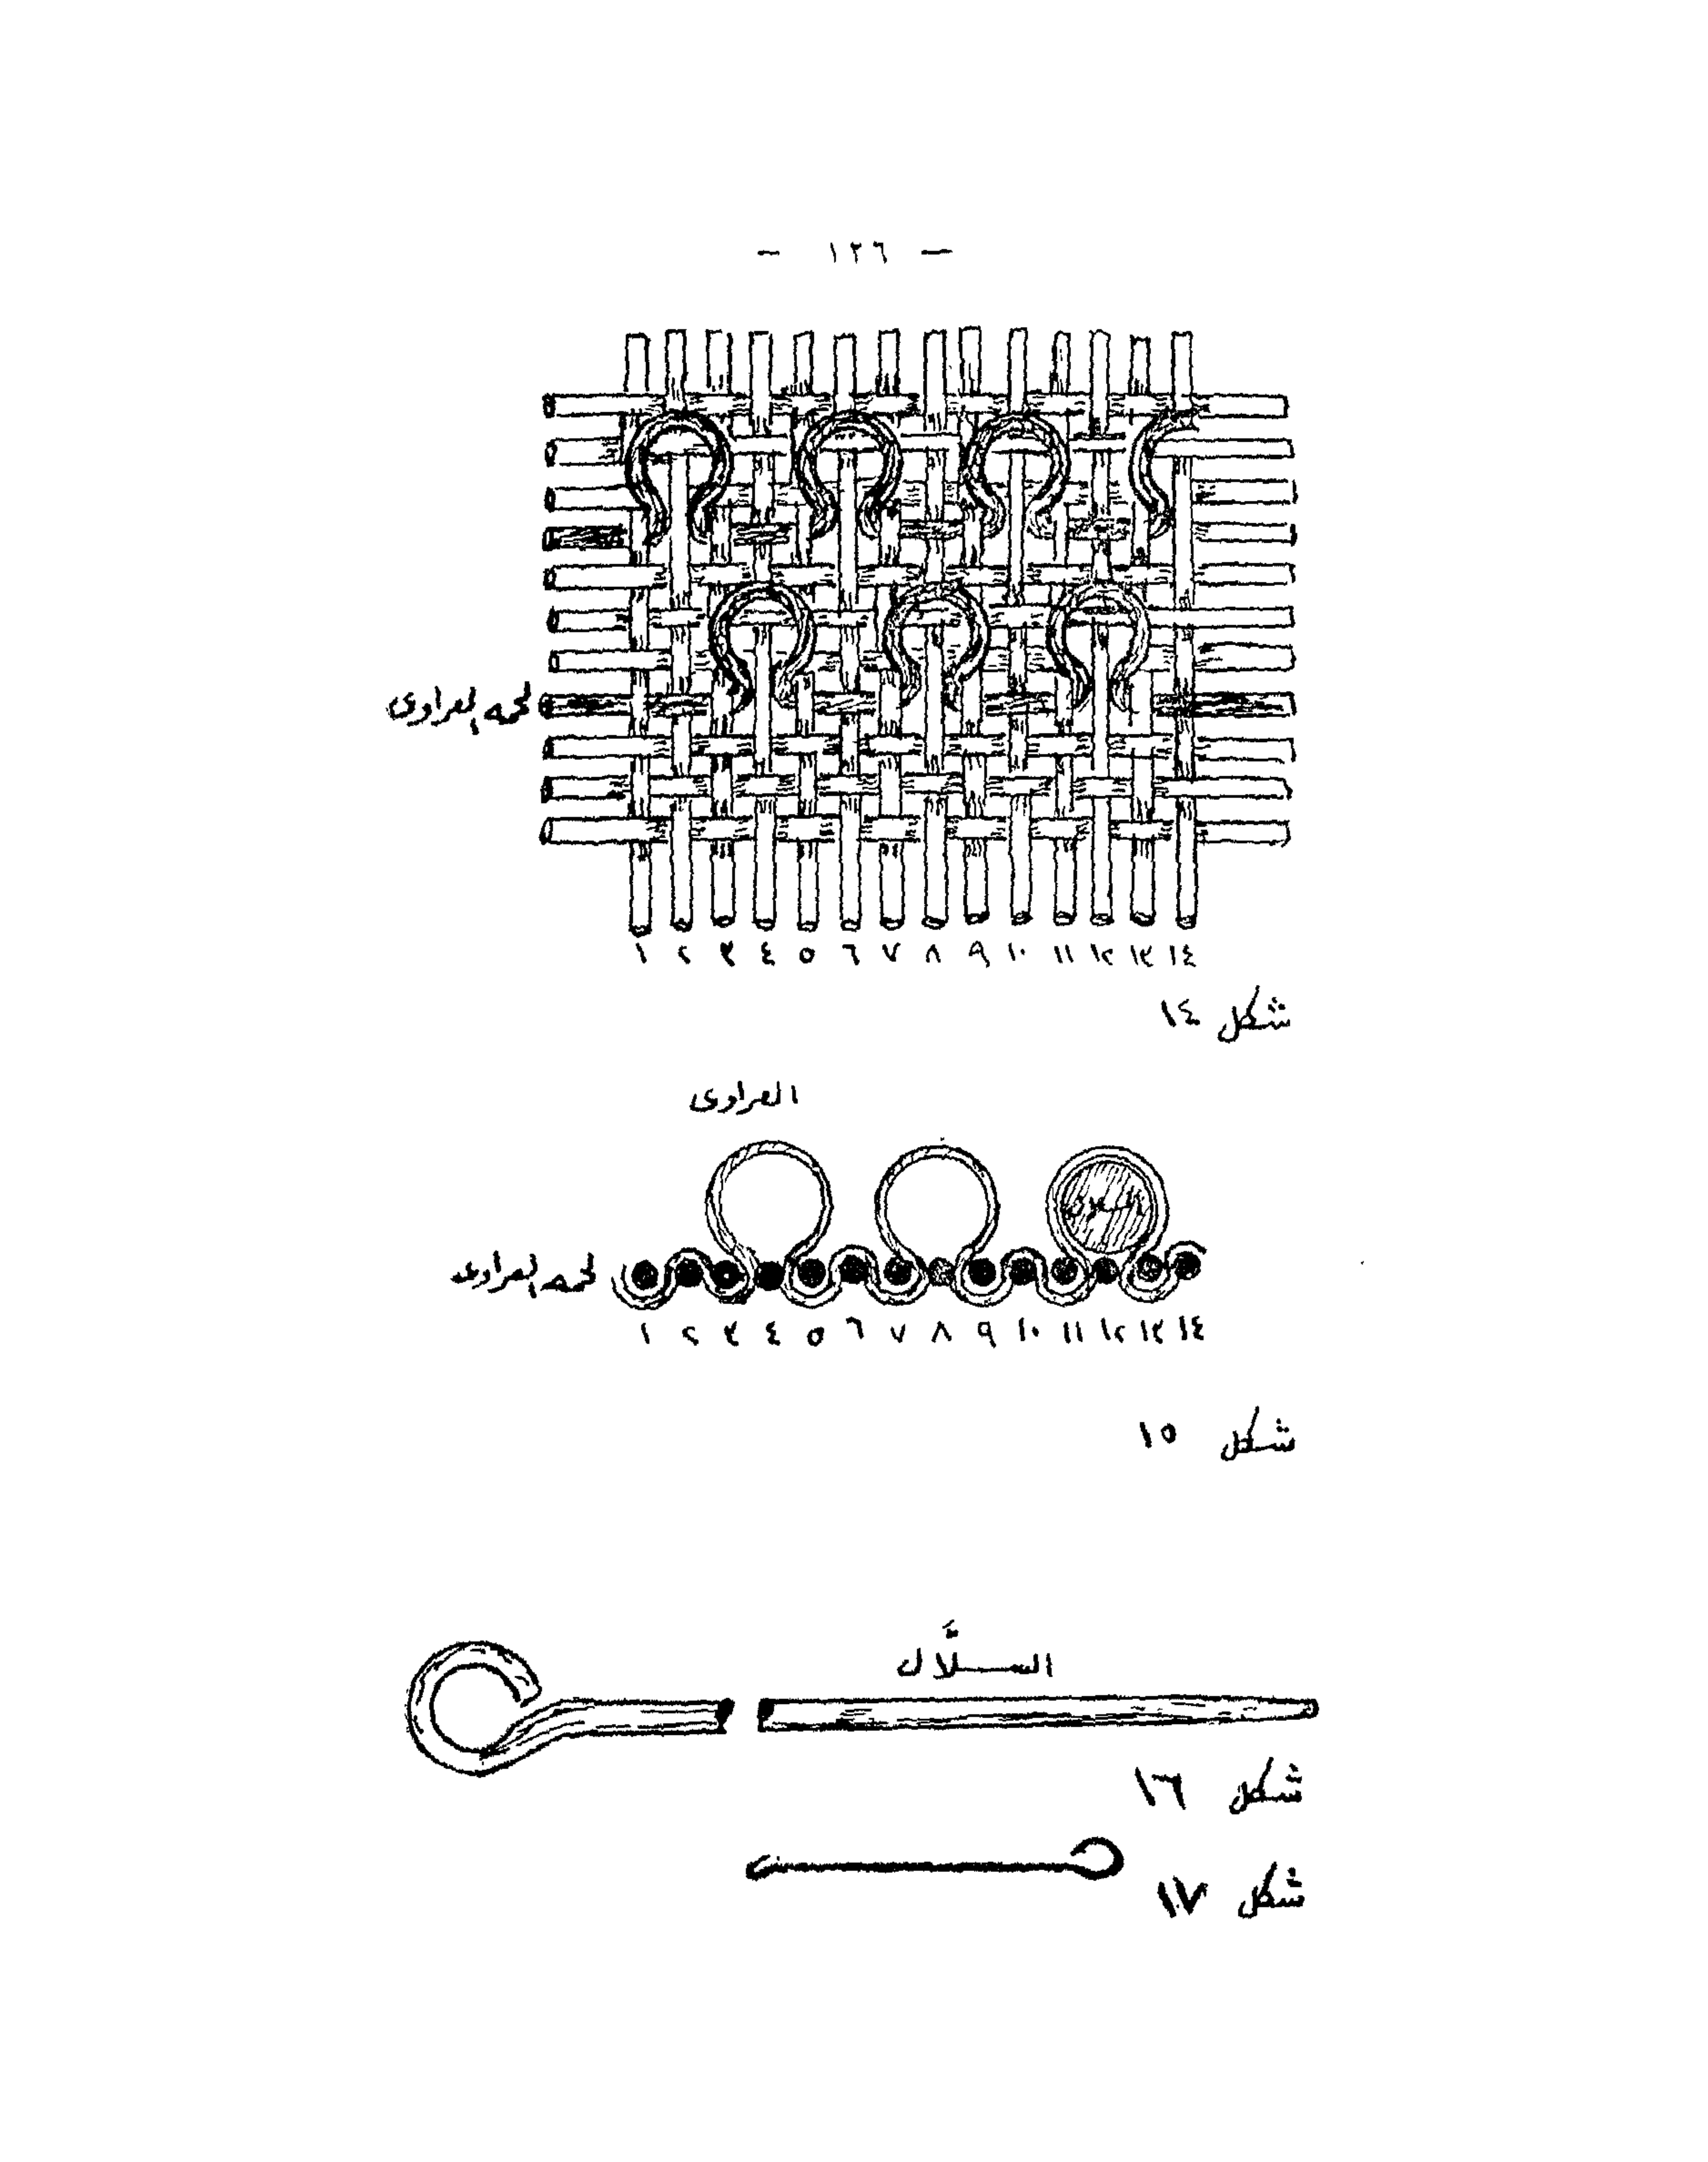 — ١٢٦ —
لحمه العراوى
١ ٢ ٣ ٤ ٥ ٦ ٧ ٨ ٩ ١٠ ١١ ١٢ ١٣ ١٤
شكل ١٤
العراوى
السلال
لحمه العراوى
١ ٢ ٣ ٤ ٥ ٦ ٧ ٨ ٩ ١٠ ١١ ١٢ ١٣ ١٤
شكل ١٥
السلَّال
شكل ١٦
شكل ١٧